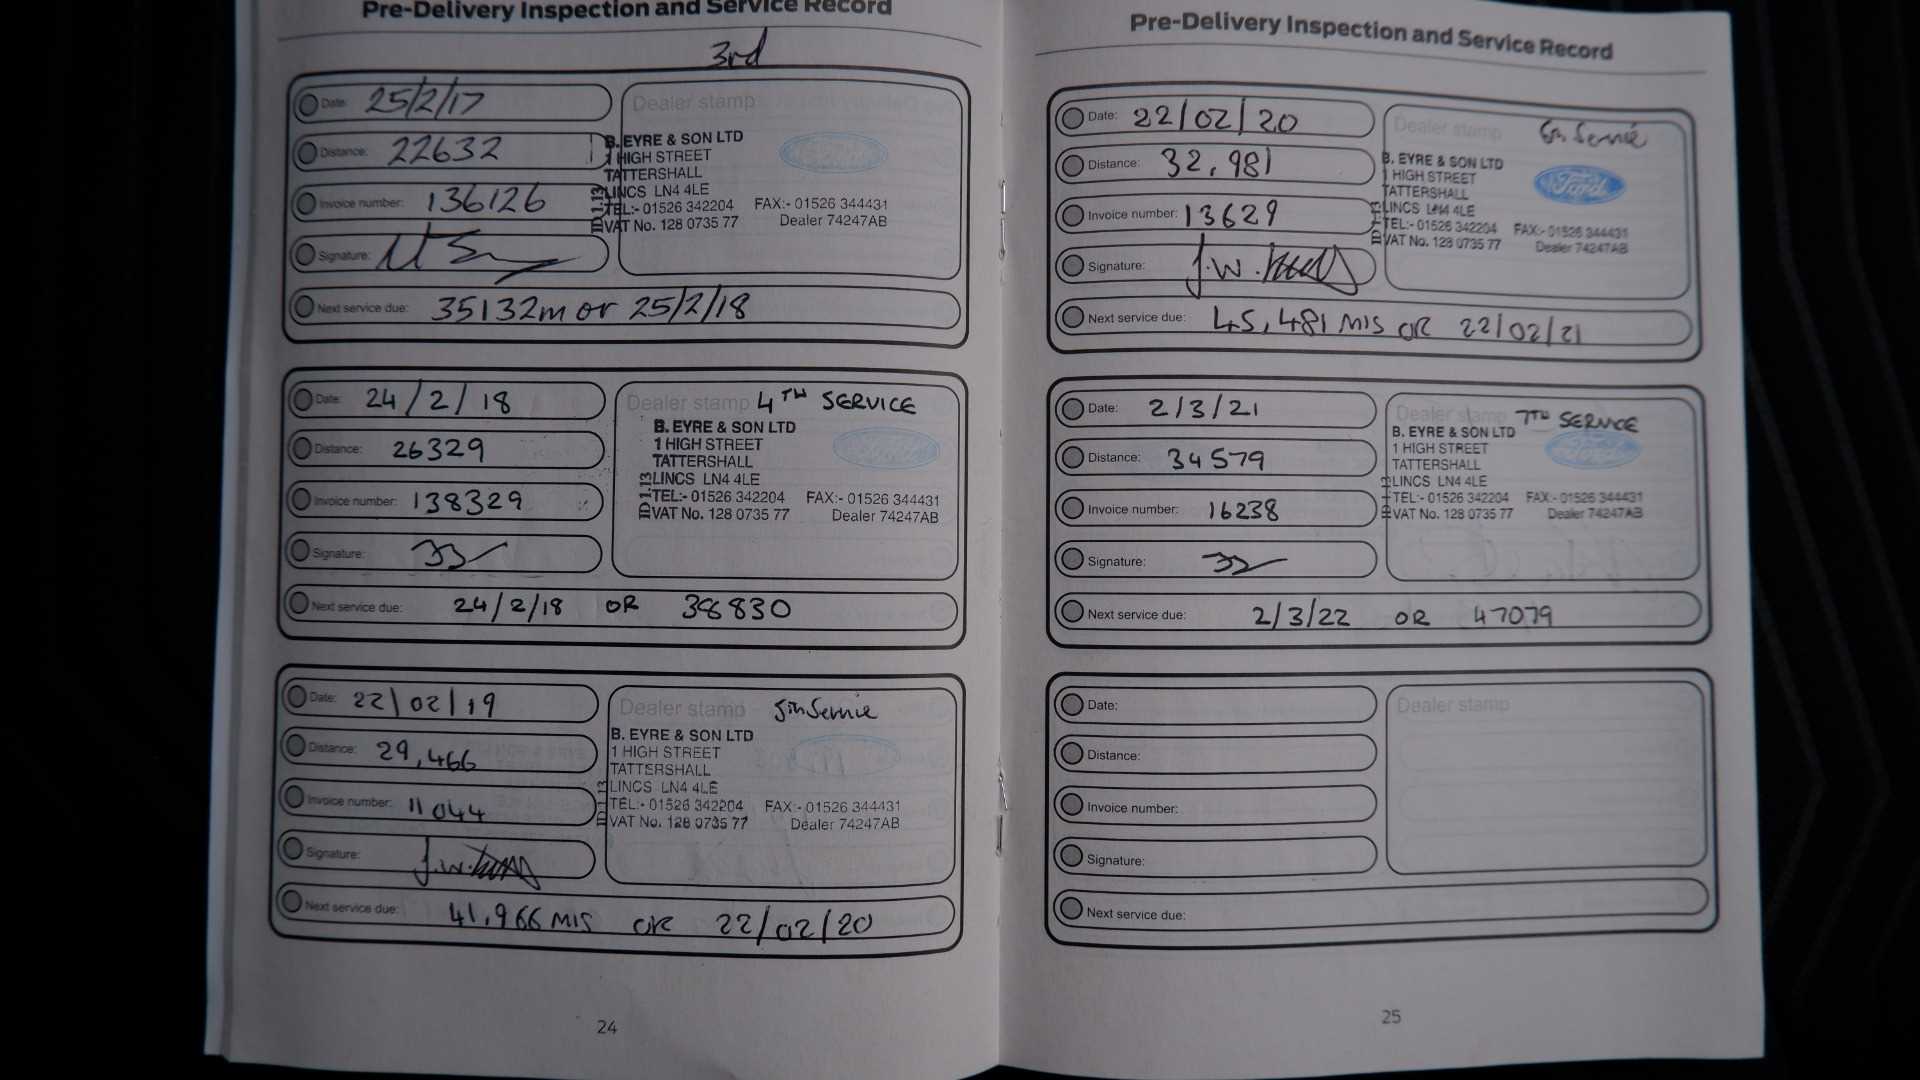 Pre-Delivery Inspection and Service Record
3rd
Date: 25/2/17
Distance: 22632
Invoice number: 136126
Signature:
Next service due: 35132m or 25/2/18
Dealer stamp
B. EYRE & SON LTD
1 HIGH STREET
TATTERSHALL
LINCS LN4 4LE
TEL:- 01526 342204 FAX:- 01526 344431
VAT No. 128 0735 77 Dealer 74247AB
ID 1.13
Date: 24/2/18
Distance: 26329
Invoice number: 138329
Signature:
Next service due: 24/2/18 OR 38830
Dealer stamp 4TH SERVICE
B. EYRE & SON LTD
1 HIGH STREET
TATTERSHALL
LINCS LN4 4LE
TEL:- 01526 342204 FAX:- 01526 344431
VAT No. 128 0735 77 Dealer 74247AB
ID 1.13
Date: 22/02/19
Distance: 29,466
Invoice number: 11044
Signature: J.W.
Next service due: 41,966 MIS OR 22/02/20
Dealer stamp 5th Service
B. EYRE & SON LTD
1 HIGH STREET
TATTERSHALL
LINCS LN4 4LE
TEL:- 01526 342204 FAX:- 01526 344431
VAT No. 128 0735 77 Dealer 74247AB
ID 1.13
24
Pre-Delivery Inspection and Service Record
Date: 22/02/20
Distance: 32,981
Invoice number: 13629
Signature: J.W.
Next service due: 45,481 MIS OR 22/02/21
Dealer stamp Service
Ford
B. EYRE & SON LTD
1 HIGH STREET
TATTERSHALL
LINCS LN4 4LE
TEL:- 01526 342204 FAX:- 01526 344431
VAT No. 128 0735 77 Dealer 74247AB
Date: 2/3/21
Distance: 34579
Invoice number: 16238
Signature:
Next service due: 2/3/22 OR 47079
Dealer stamp 7TH SERVICE
Ford
B. EYRE & SON LTD
1 HIGH STREET
TATTERSHALL
LINCS LN4 4LE
TEL:- 01526 342204 FAX:- 01526 344431
VAT No. 128 0735 77 Dealer 74247AB
Date:
Distance:
Invoice number:
Signature:
Next service due:
Dealer stamp
25